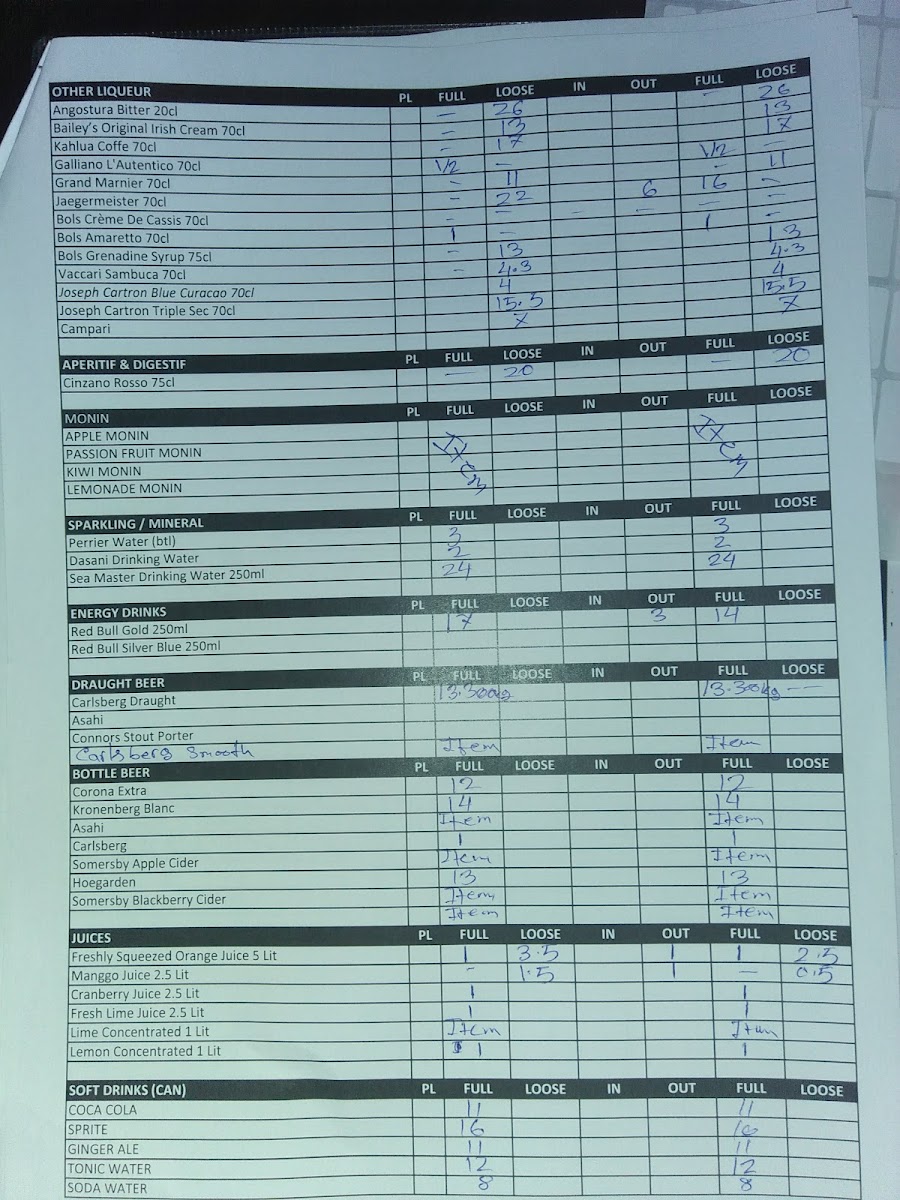 OTHER LIQUEUR PL FULL LOOSE IN OUT FULL LOOSE
Angostura Bitter 20cl — 26 — 26
Bailey's Original Irish Cream 70cl — 13 13
Kahlua Coffe 70cl — 17 17
Galliano L'Autentico 70cl 1/2 — 1/2 —
Grand Marnier 70cl — 11 — 11
Jaegermeister 70cl — 22 6 16 —
Bols Crème De Cassis 70cl — — — — — —
Bols Amaretto 70cl 1 — 1 —
Bols Grenadine Syrup 75cl — 13 13
Vaccari Sambuca 70cl — 4.3 4.3
Joseph Cartron Blue Curacao 70cl 4 4
Joseph Cartron Triple Sec 70cl 15.5 15.5
Campari 7 7
APERITIF & DIGESTIF PL FULL LOOSE IN OUT FULL LOOSE
Cinzano Rosso 75cl — 20 — 20
MONIN PL FULL LOOSE IN OUT FULL LOOSE
APPLE MONIN
PASSION FRUIT MONIN Item Item
KIWI MONIN
LEMONADE MONIN
SPARKLING / MINERAL PL FULL LOOSE IN OUT FULL LOOSE
Perrier Water (btl) 3 3
Dasani Drinking Water 2 2
Sea Master Drinking Water 250ml 24 24
ENERGY DRINKS PL FULL LOOSE IN OUT FULL LOOSE
Red Bull Gold 250ml 17 3 14
Red Bull Silver Blue 250ml
DRAUGHT BEER PL FULL LOOSE IN OUT FULL LOOSE
Carlsberg Draught 13.300kg 13.300kg —
Asahi
Connors Stout Porter
Carlsberg Smooth Item Item
BOTTLE BEER PL FULL LOOSE IN OUT FULL LOOSE
Corona Extra 12 12
Kronenberg Blanc 14 14
Asahi Item Item
Carlsberg 1 1
Somersby Apple Cider Item Item
Hoegarden 13 13
Somersby Blackberry Cider Item Item
Item Item
JUICES PL FULL LOOSE IN OUT FULL LOOSE
Freshly Squeezed Orange Juice 5 Lit 1 3.5 1 1 2.5
Manggo Juice 2.5 Lit — 1.5 1 — 0.5
Cranberry Juice 2.5 Lit 1 1
Fresh Lime Juice 2.5 Lit 1 1
Lime Concentrated 1 Lit Item Item
Lemon Concentrated 1 Lit 1 1
SOFT DRINKS (CAN) PL FULL LOOSE IN OUT FULL LOOSE
COCA COLA 11 11
SPRITE 16 16
GINGER ALE 11 11
TONIC WATER 12 12
SODA WATER 8 8